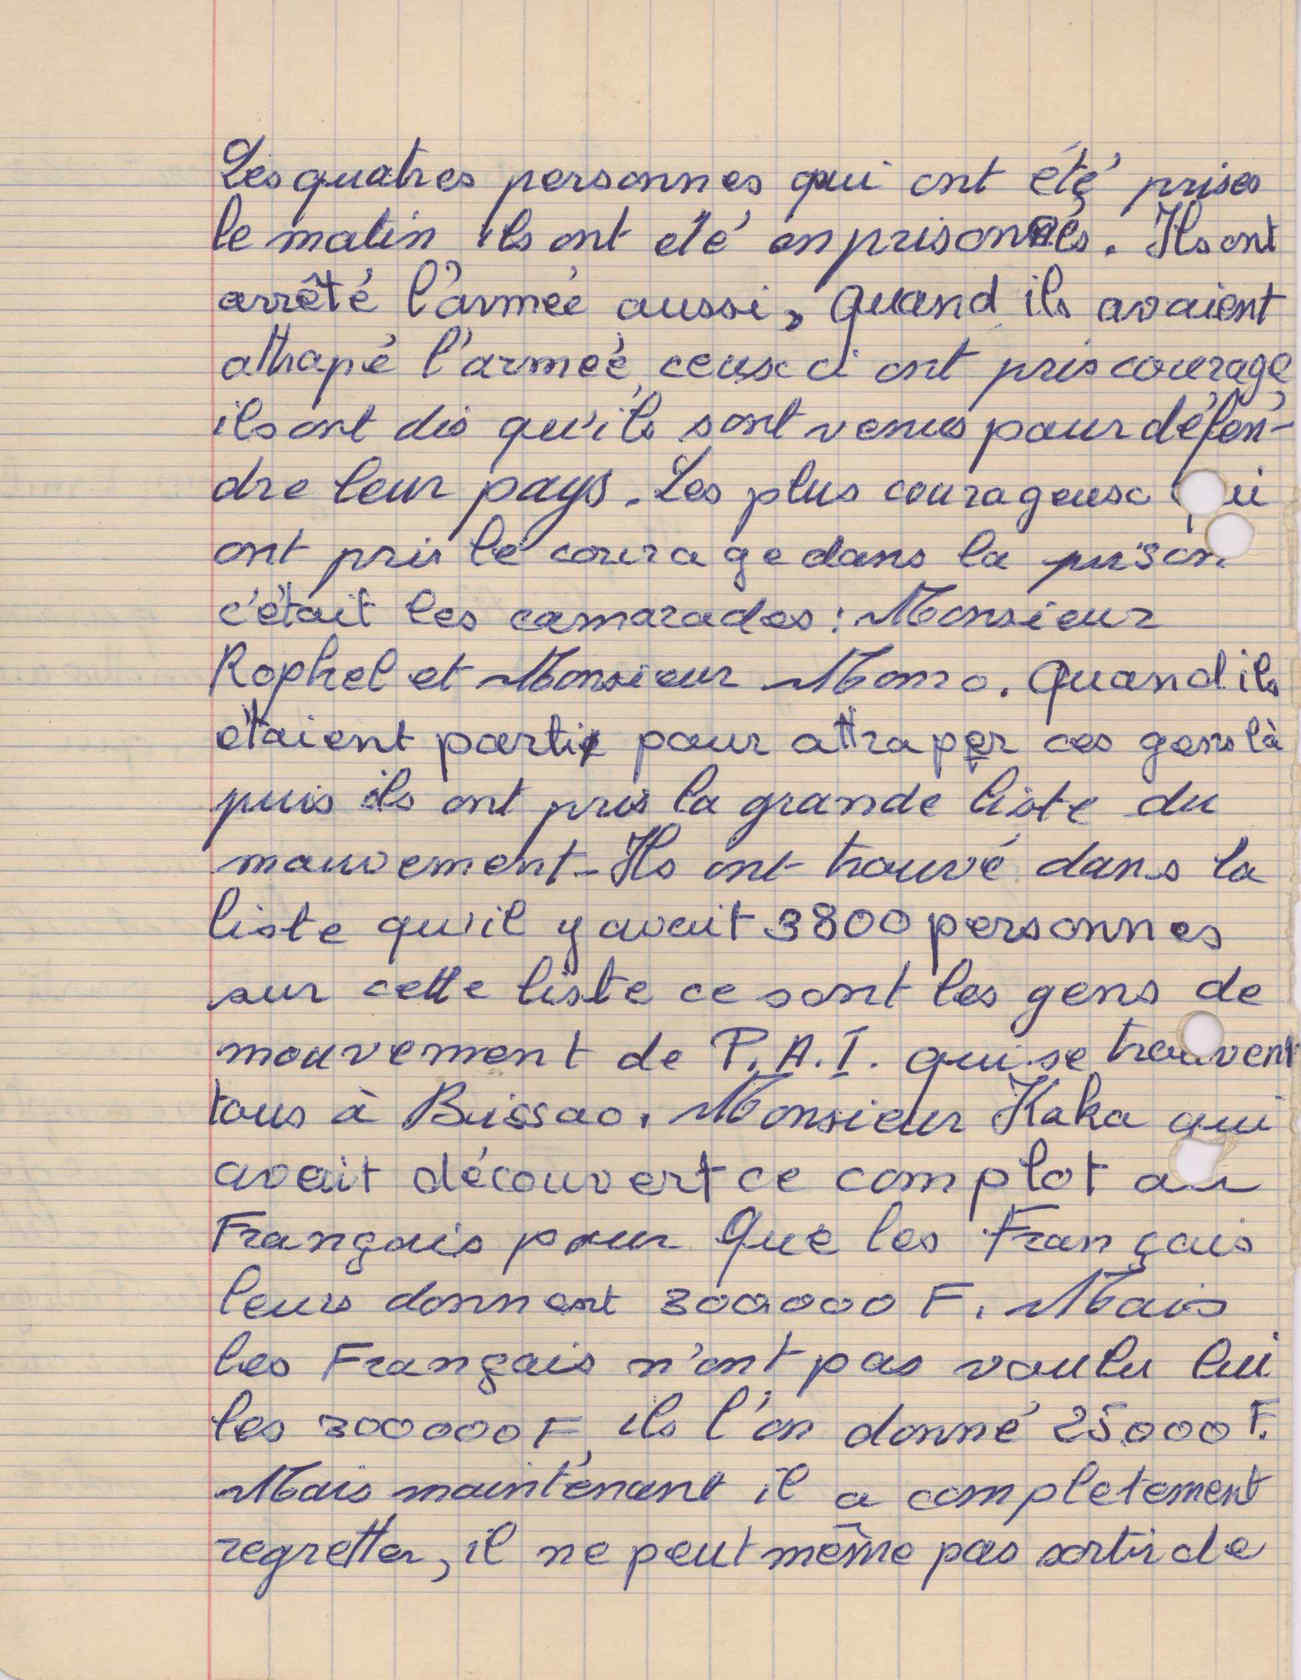 Les quatres personnes qui ont été prises
le matin ils ont eté enprisonnés. Ils ont
arrêté l'armée aussi, quand ils avaient
attrapé l'armeé, ceux ci ont pris courage,
ils ont dis qu'ils sont venus pour défen-
dre leur pays. Les plus courageux qui
ont pris le courage dans la prison
c'était les camarades : Monsieur
Rophel et Monsieur Momo. quand ils
etaient partie pour attraper ces gens là
puis ils ont pris la grande liste du
mouvement - Ils ont trouvé dans la
liste qu'il y avait 3800 personnes
sur cette liste ce sont les gens de
mouvement de P.A.I. qui se trouvent
tous à Bissao. Monsieur Kaka qui
avait découvert ce complot au
Français pour que les Français
leurs donnent 300000 F. Mais
les Français n'ont pas voulu lui
les 300000 F, ils l'on donné 25000 F.
Mais maintenant il a completement
regretter, il ne peut même pas sortir de